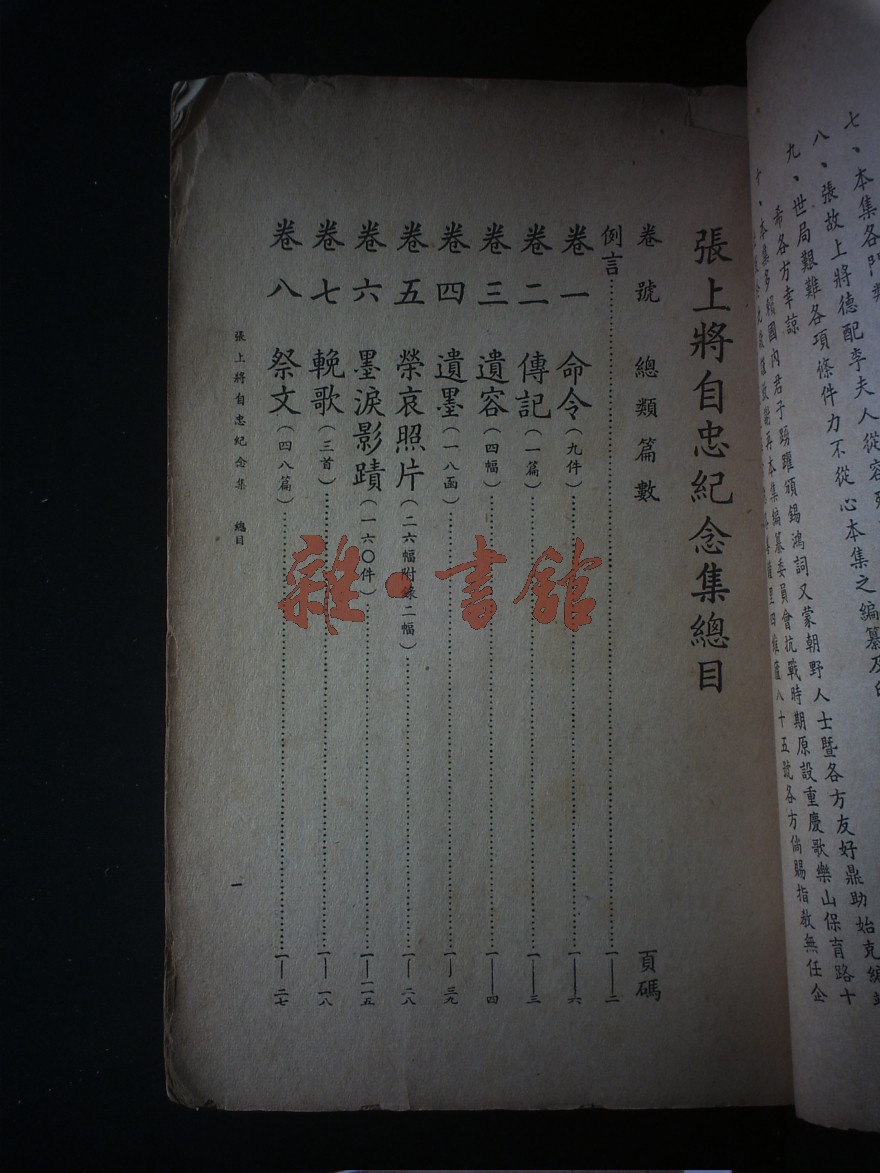 七、本集各門類
八、張故上將德配李夫人從容殉
九、世局艱難各項條件力不從心本集之編纂及印
希各方幸諒
十、本集多賴國內君子踴躍頒錫鴻詞又蒙朝野人士暨各方友好鼎助始克編
致謝再本集編纂委員會抗戰時期原設重慶歌樂山保育路十
八十五號各方倘賜指教無任企
張上將自忠紀念集總目
卷號 總類篇數 頁碼
例言 一—二
卷一 命令(九件) 一—六
卷二 傳記(一篇) 一—三
卷三 遺容(四幅) 一—四
卷四 遺墨(一八函) 一—三九
卷五 榮哀照片(二六幅附錄二幅) 一—二八
卷六 墨淚影蹟(一六〇件) 一—一二五
卷七 輓歌(三首) 一—一八
卷八 祭文(四八篇) 一—二七
張上將自忠紀念集 總目 一
雜·書館